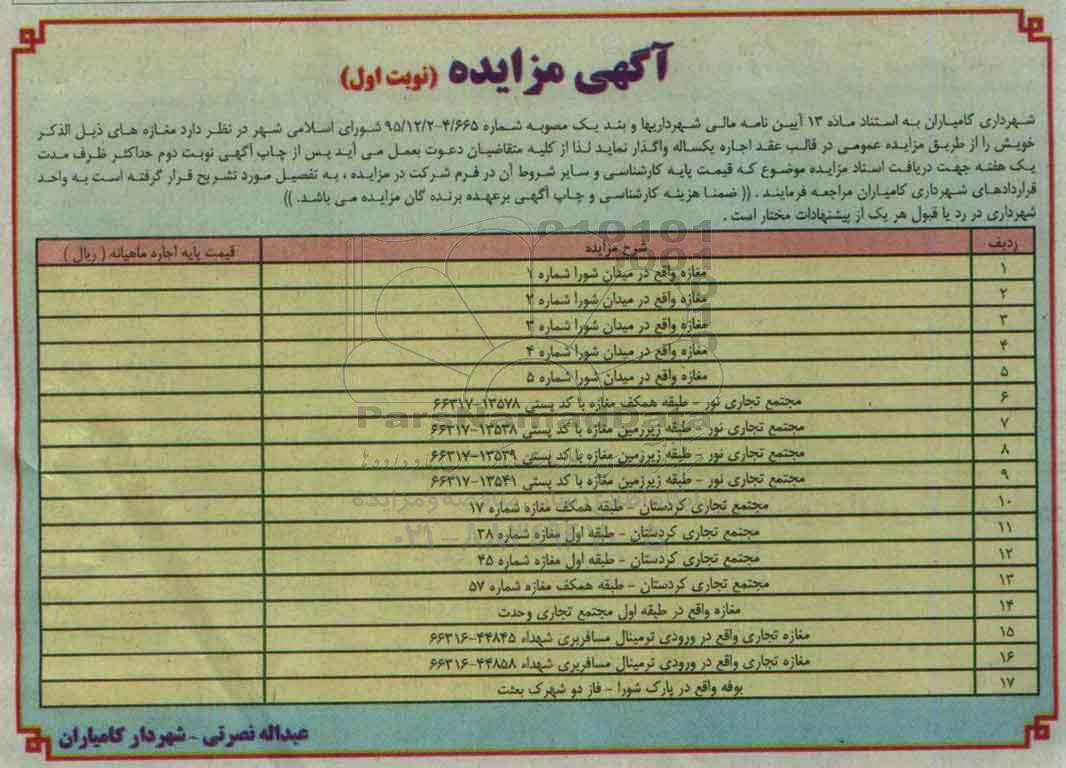 آگهی مزایده (نوبت اول)
شهرداری کامیاران به استناد ماده ۱۳ آیین نامه مالی شهرداریها و بند یک مصوبه شماره ۴/۶۶۵-۹۵/۱۲/۲ شورای اسلامی شهر در نظر دارد مغازه های ذیل الذکر
خویش را از طریق مزایده عمومی در قالب عقد اجاره یکساله واگذار نماید لذا از کلیه متقاضیان دعوت بعمل می آید پس از چاپ آگهی نوبت دوم حداکثر ظرف مدت
یک هفته جهت دریافت اسناد مزایده موضوع که قیمت پایه کارشناسی و سایر شروط آن در فرم شرکت در مزایده ، به تفصیل مورد تشریح قرار گرفته است به واحد
قراردادهای شهرداری کامیاران مراجعه فرمایند . (( ضمنا هزینه کارشناسی و چاپ آگهی برعهده برنده گان مزایده می باشد. ))
شهرداری در رد یا قبول هر یک از پیشنهادات مختار است .
ردیف شرح مزایده قیمت پایه اجاره ماهیانه ( ریال )
۱ مغازه واقع در میدان شورا شماره ۱
۲ مغازه واقع در میدان شورا شماره ۲
۳ مغازه واقع در میدان شورا شماره ۳
۴ مغازه واقع در میدان شورا شماره ۴
۵ مغازه واقع در میدان شورا شماره ۵
۶ مجتمع تجاری نور - طبقه همکف مغازه با کد پستی ۱۳۵۷۸-۶۶۳۱۷
۷ مجتمع تجاری نور - طبقه زیرزمین مغازه با کد پستی ۱۳۵۳۸-۶۶۳۱۷
۸ مجتمع تجاری نور - طبقه زیرزمین مغازه با کد پستی ۱۳۵۳۹-۶۶۳۱۷
۹ مجتمع تجاری نور - طبقه زیرزمین مغازه با کد پستی ۱۳۵۴۱-۶۶۳۱۷
۱۰ مجتمع تجاری کردستان - طبقه همکف مغازه شماره ۱۷
۱۱ مجتمع تجاری کردستان - طبقه اول مغازه شماره ۳۸
۱۲ مجتمع تجاری کردستان - طبقه اول مغازه شماره ۴۵
۱۳ مجتمع تجاری کردستان - طبقه همکف مغازه شماره ۵۷
۱۴ مغازه واقع در طبقه اول مجتمع تجاری وحدت
۱۵ مغازه تجاری واقع در ورودی ترمینال مسافربری شهداء ۴۴۸۴۵-۶۶۳۱۶
۱۶ مغازه تجاری واقع در ورودی ترمینال مسافربری شهداء ۴۴۸۵۸-۶۶۳۱۶
۱۷ بوفه واقع در پارک شورا - فاز دو شهرک بعثت
عبداله نصرتی - شهردار کامیاران